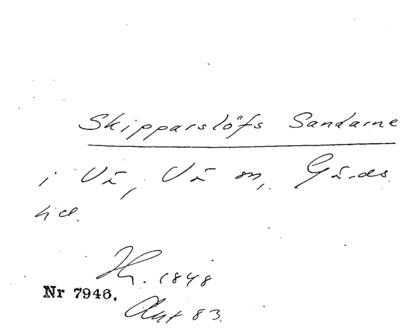 Skipparslöfs Sandarne
i Vä, Vä sn, Gärds
hd.
Hr. 1848
Nr 7946.
Akt 83.